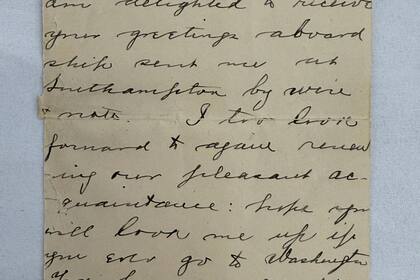 am delighted to receive
your greetings aboard
ship sent me at
Southampton by wire
& note. I too look
forward to again renew
ing our pleasant ac-
quaintance: hope you
will look me up if
you ever go to Washington